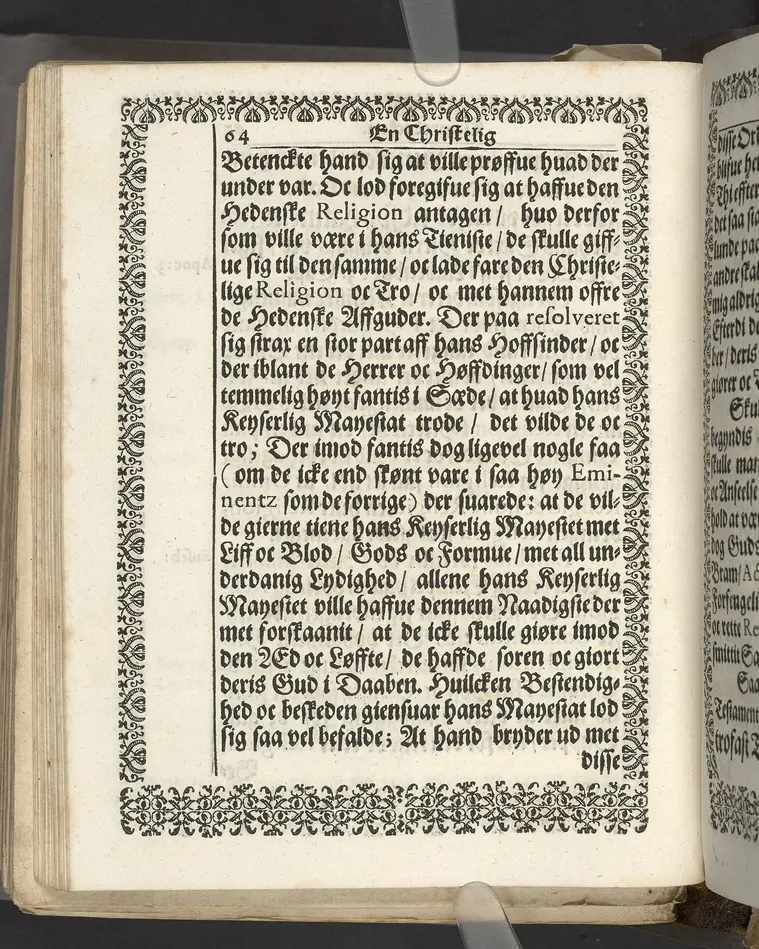 64 En Christelig
Betenckte hand sig at ville prøffue huad der
under var. Oc lod foregifue sig at haffue den
Hedenske Religion antagen / huo derfor
som ville være i hans Tieniste / de skulle giff-
ue sig til den samme / oc lade fare den Christe-
lige Religion oc Tro / oc met hannem offre
de Hedenske Affguder. Der paa resolveret
sig strax en stor part aff hans Hoffsinder / oc
der iblant de Herrer oc Høffdinger / som vel
temmelig høyt fantis i Sæde / at huad hans
Keyserlig Mayestat trode / det vilde de oc
tro; Der imod fantis dog ligevel nogle faa
( om de icke end skønt vare i saa høy Emi-
nentz som de forrige) der suarede: at de vil-
de gierne tiene hans Keyserlig Mayestet met
Liff oc Blod / Gods oc Formue / met all un-
derdanig Lydighed / allene hans Keyserlig
Mayestet ville haffue dennem Naadigste der
met forskaanit / at de icke skulle giøre imod
den Æd oc Løffte / de haffde soren oc giort
deris Gud i Daaben. Huilcken Bestendig-
hed oc beskeden giensuar hans Mayestat lod
sig saa vel befalde; At hand bryder ud met
disse